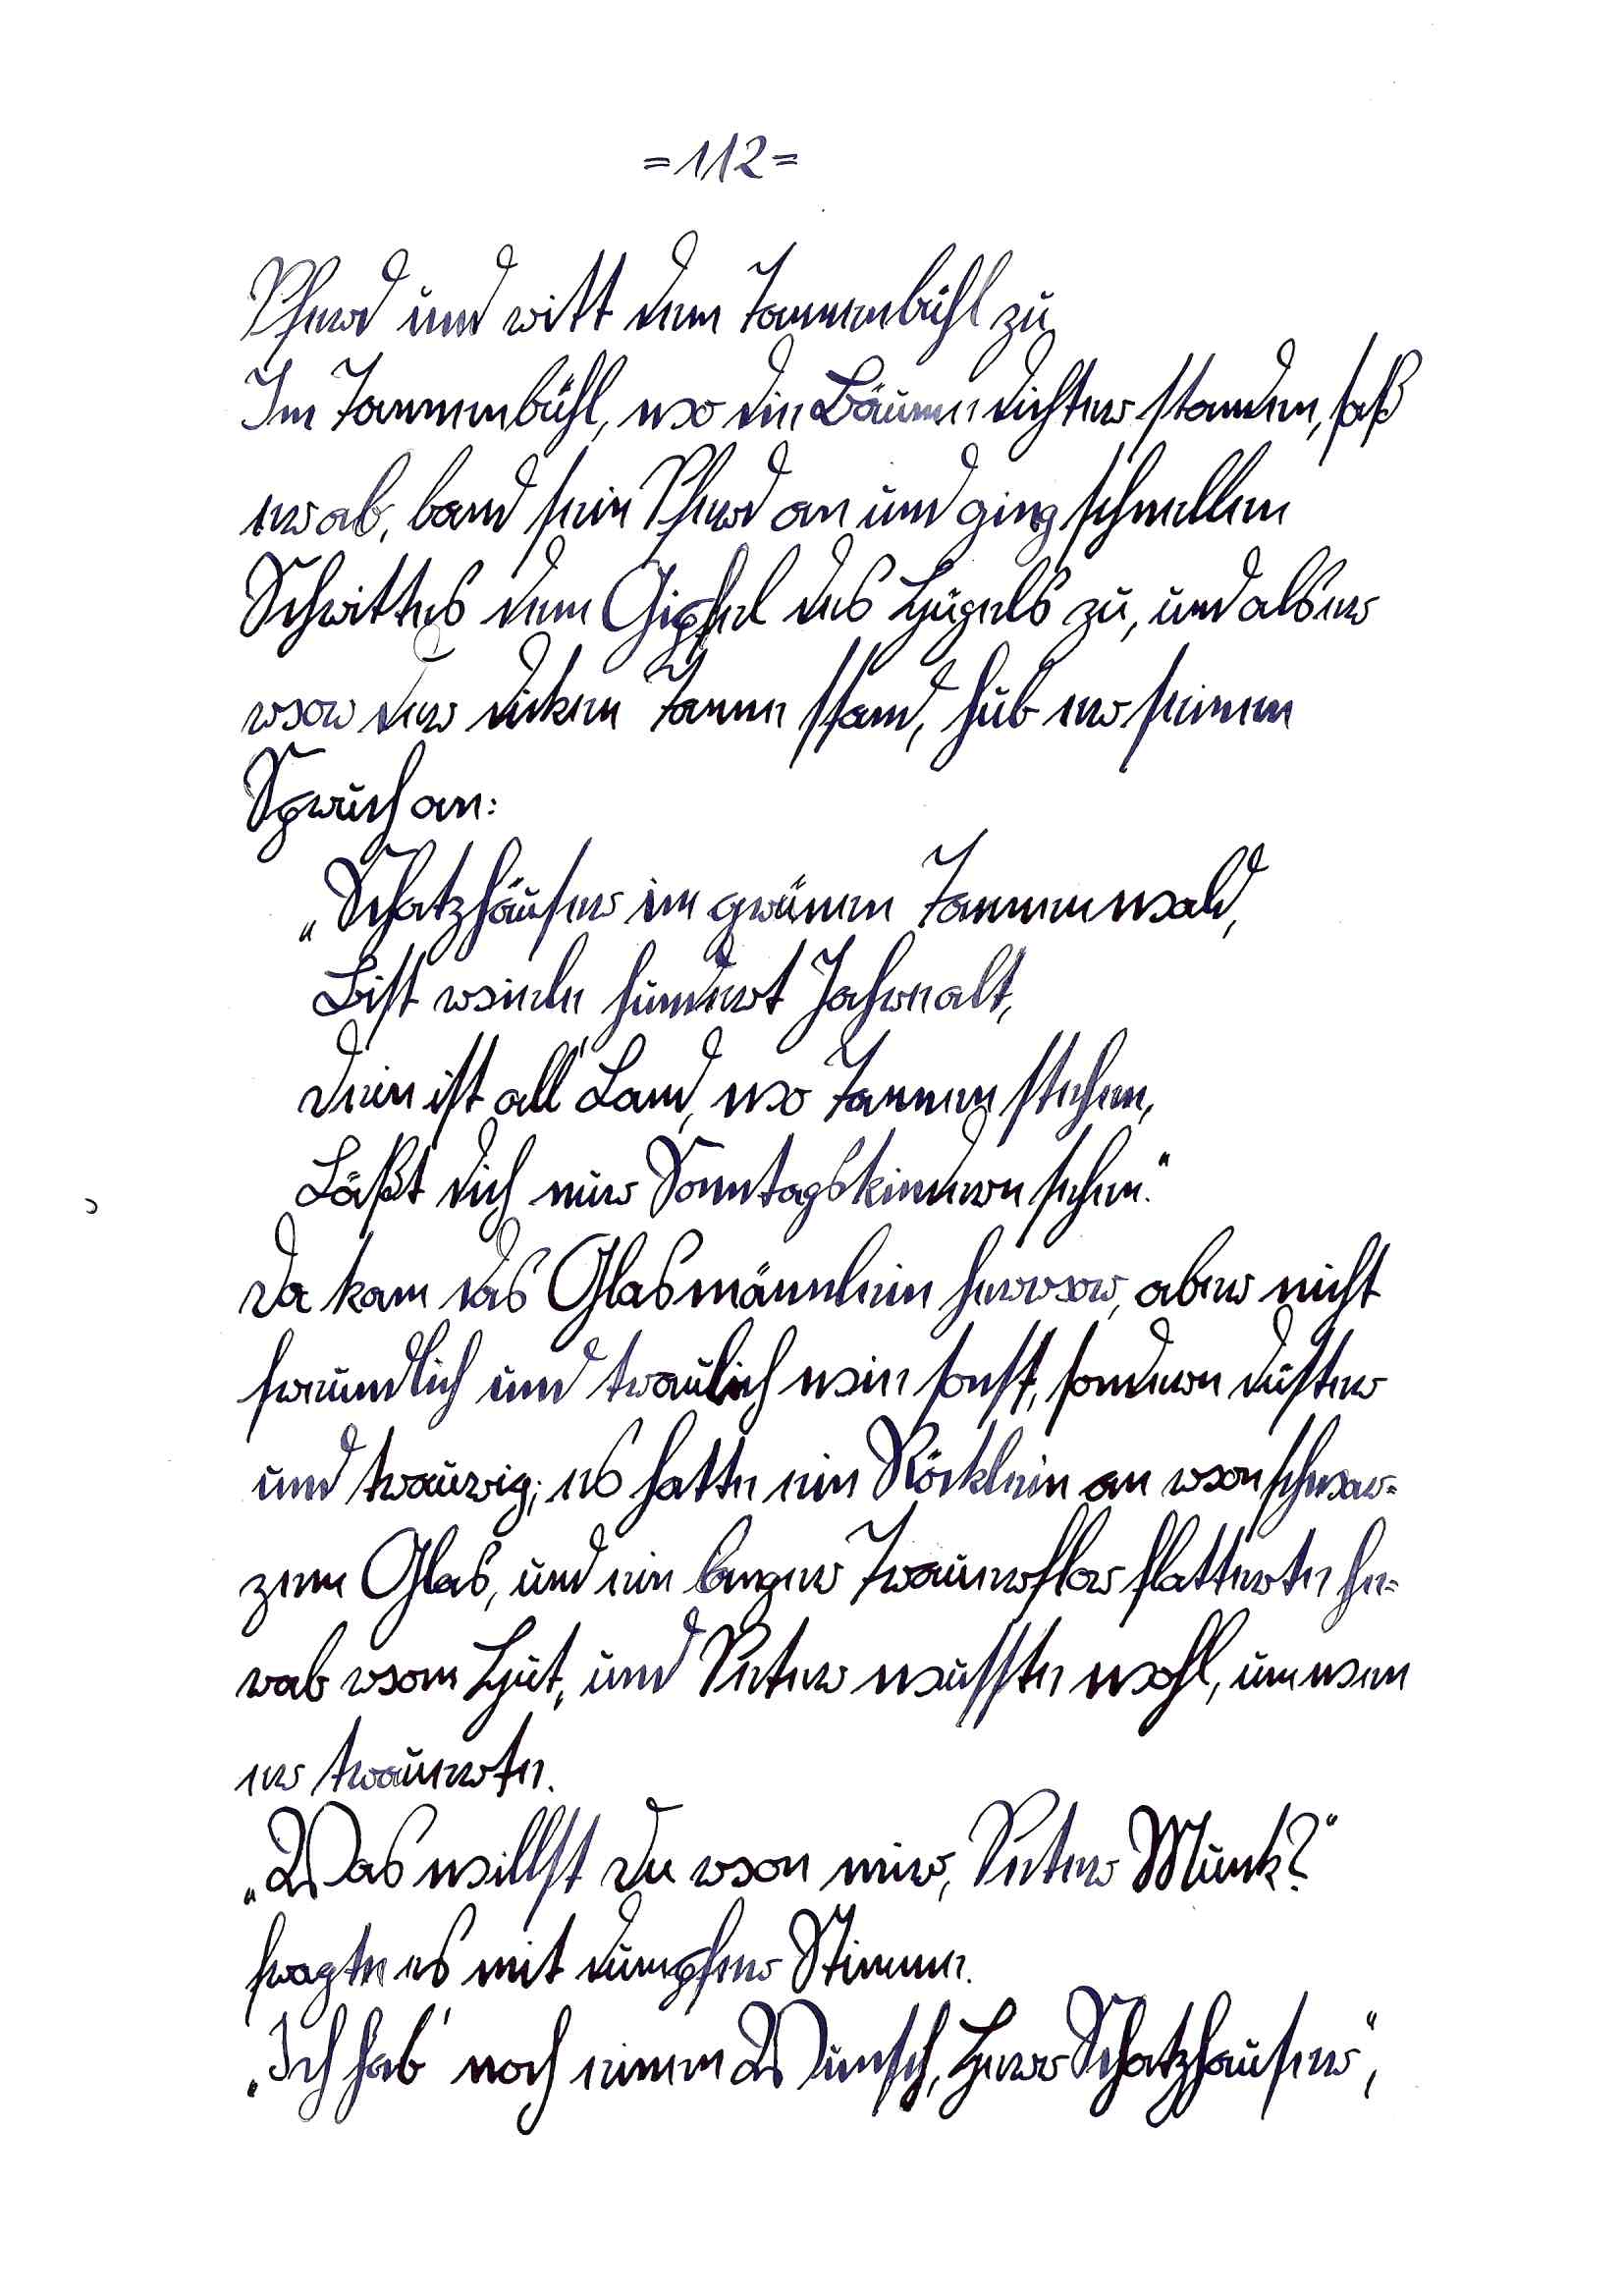 =112=
Pferd und ritt dem Tannenbühl zu
Im Tannenbühl, wo die Bäume dichter standen, saß
er ab, band sein Pferd an und ging schnellen
Schrittes dem Gipfel des Hügels zu, und als er
vor der dicken Tanne stand, hub er seinen
Spruch an:
„Schatzhäuser im grünen Tannenwald,
Bist viele hundert Jahre alt,
Dein ist all' Land, wo Tannen stehen,
Läßt dich nur Sonntagskindern sehen."
Da kam das Glasmännlein hervor, aber nicht
freundlich und traulich wie sonst, sondern düster
und traurig; es hatte ein Röcklein an von schwar-
zem Glas, und ein langer Trauerflor flatterte he-
rab vom Hut, und Peter wusste wohl, um wen
er trauerte.
„Was willst Du von mir, Peter Munk?"
fragte es mit dumpfer Stimme.
„Ich hab' noch einen Wunsch, Herr Schatzhauser",